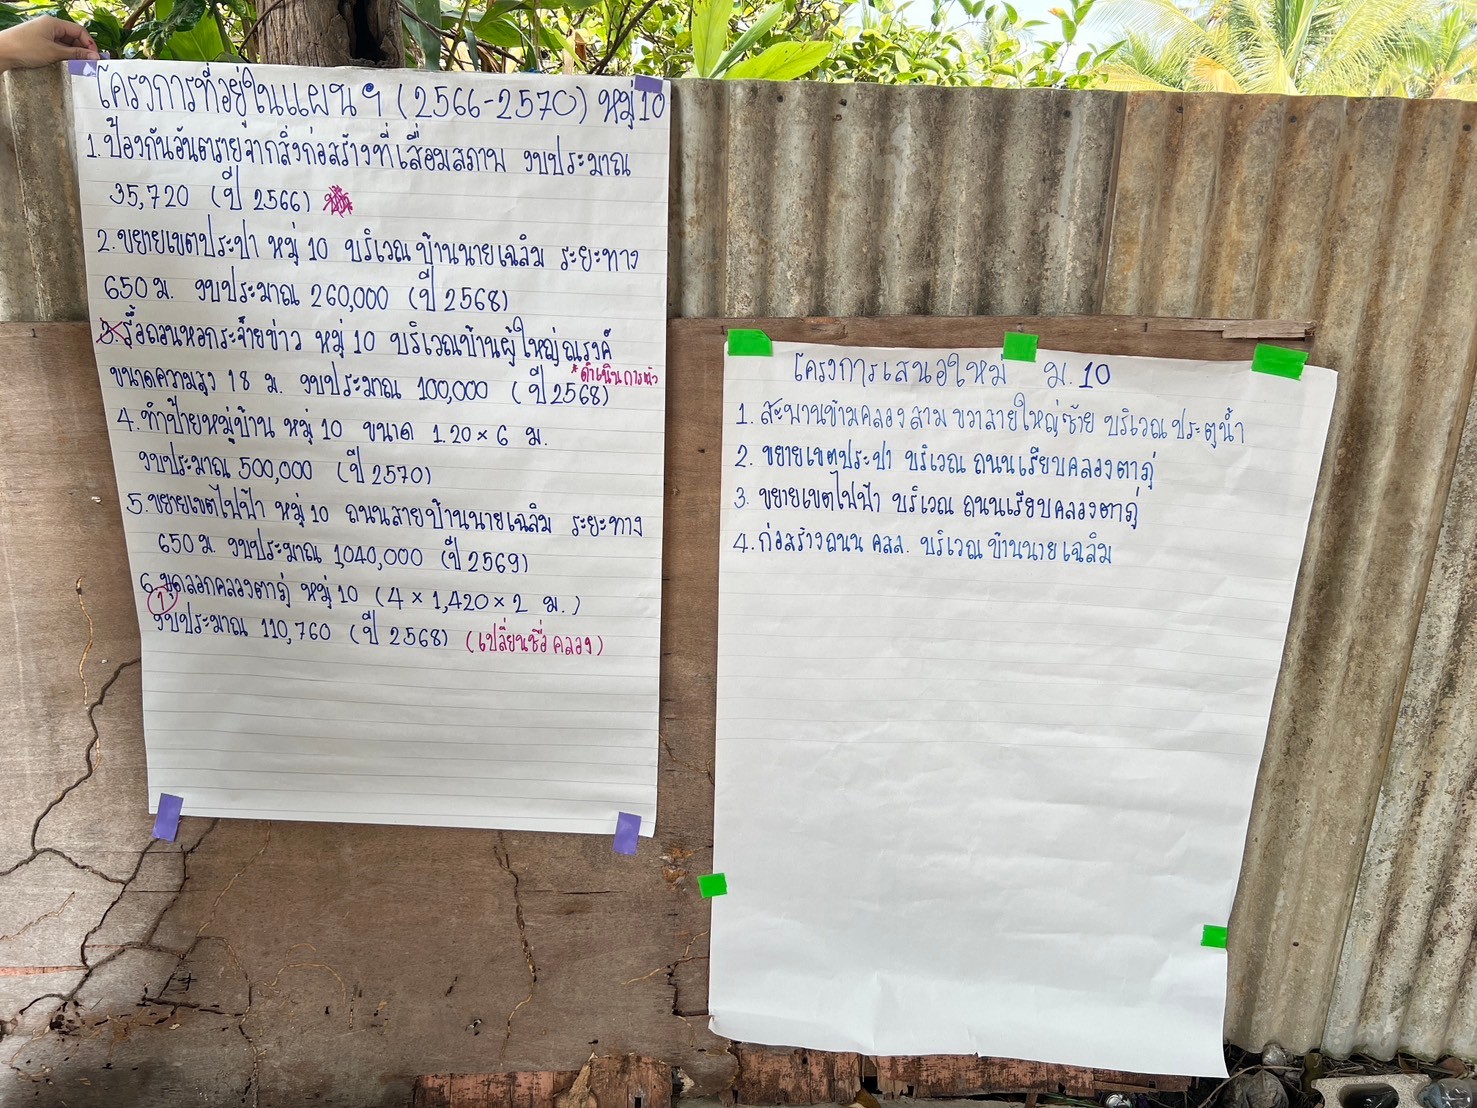 โครงการที่อยู่ในแผน ฯ (2566-2570) หมู่ 10
1. ป้องกันอันตรายจากสิ่งก่อสร้างที่เสื่อมสภาพ งบประมาณ
35,720 (ปี 2566)
2. ขยายเขตประปา หมู่ 10 บริเวณ บ้านนายเฉลิม ระยะทาง
650 ม. งบประมาณ 260,000 (ปี 2568)
3. รื้อถอนหอกระจ่ายข่าว หมู่ 10 บริเวณบ้านผู้ใหญ่ณรงค์
*ดำเนินการแล้ว
ขนาดความสูง 18 ม. งบประมาณ 100,000 (ปี 2568)
4. ทำป้ายหมู่บ้าน หมู่ 10 ขนาด 1.20 × 6 ม.
งบประมาณ 500,000 (ปี 2570)
5. ขยายเขตไฟฟ้า หมู่ 10 ถนนสายบ้านนายเฉลิม ระยะทาง
650 ม. งบประมาณ 1,040,000 (ปี 2569)
6. ขุดลอกคลองตาภู่ หมู่ 10 (4 × 1,420 × 2 ม.)
1
งบประมาณ 110,760 (ปี 2568) (เปลี่ยนชื่อ คลอง)
โครงการเสนอใหม่ ม.10
1. สะพานข้ามคลองสาม ขวาสายใหญ่ซ้าย บริเวณ ประตูน้ำ
2. ขยายเขตประปา บริเวณ ถนนเรียบคลองตาภู่
3. ขยายเขตไฟฟ้า บริเวณ ถนนเรียบคลองตาภู่
4. ก่อสร้างถนน คสล. บริเวณ บ้านนายเฉลิม